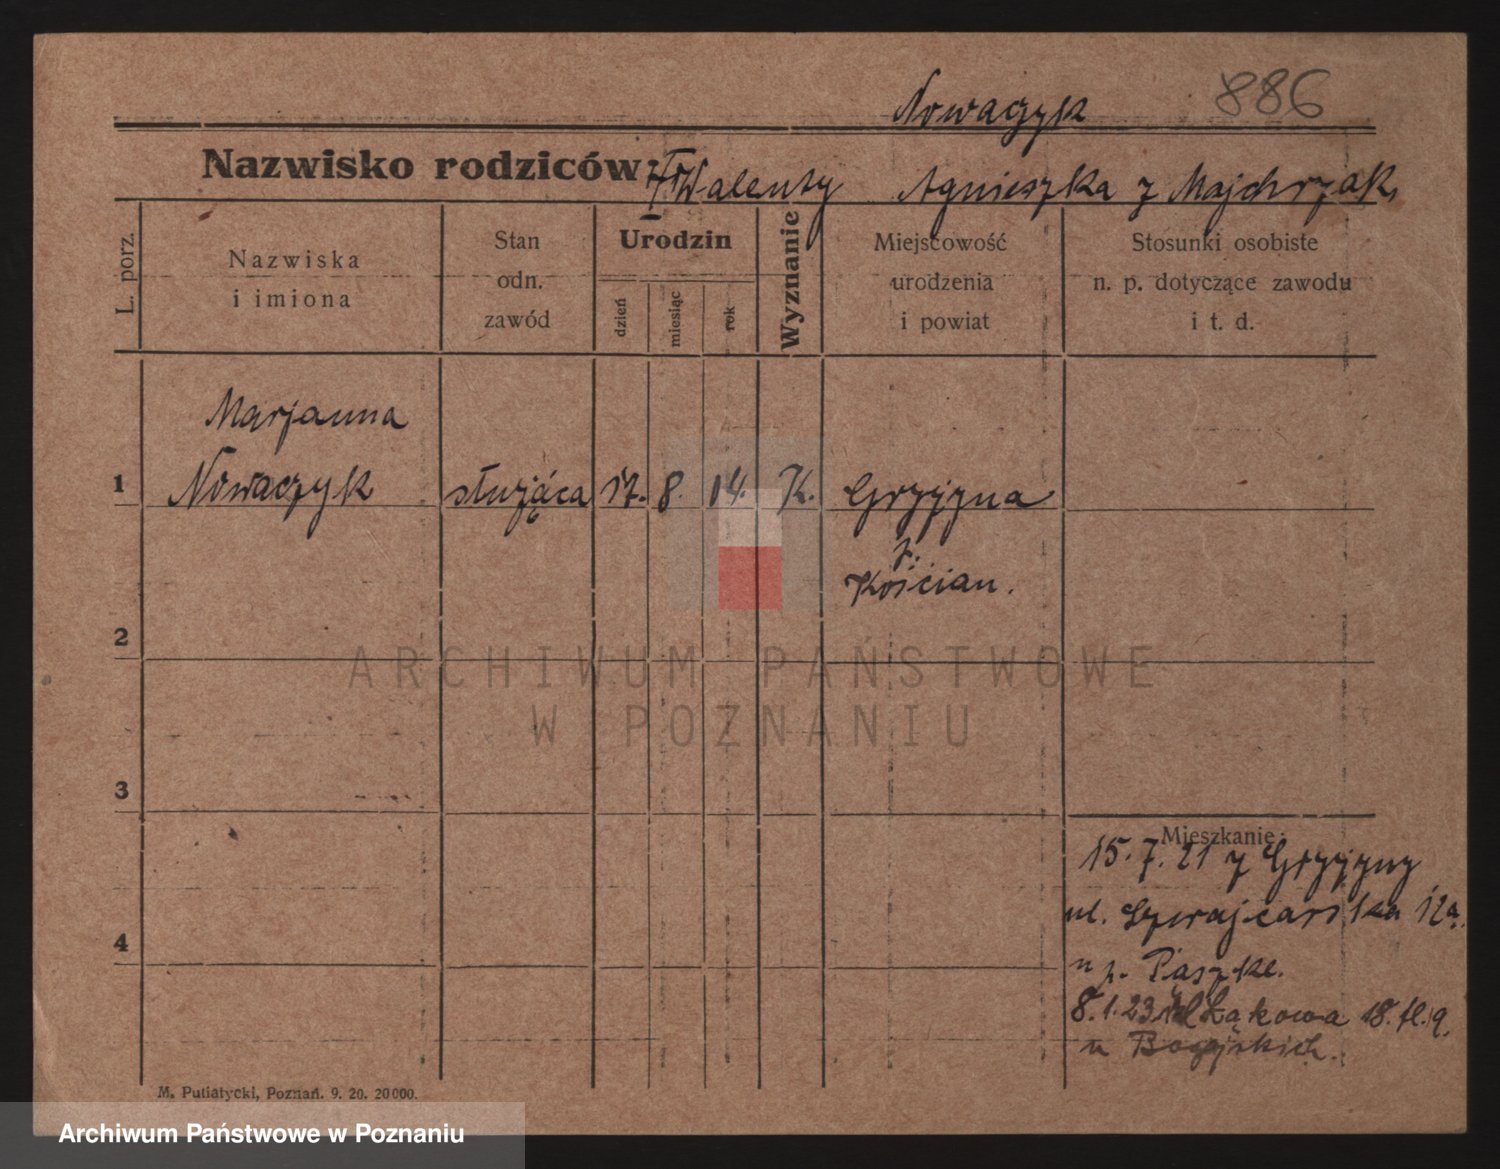 Nowaczyk 886
Nazwisko rodziców: Walenty Agnieszka z Majchrzak
L. porz.
Nazwiska
i imiona
Stan
odn.
zawód
Urodzin
dzień
miesiąc
rok
Wyznanie
Miejscowość
urodzenia
i powiat
Stosunki osobiste
n. p. dotyczące zawodu
i t. d.
Marjanna
1 Nowaczyk służąca 17. 8. 14. K. Gryżyna
p.
Kościan.
2
ARCHIWUM PAŃSTWOWE
W POZNANIU
3
Mieszkanie:
15. 7. 21 z Gryżyny
ul. Szwajcarska 12a.
4
u p. Paszke.
8. 1. 23 Łąkowa 18.
u
M. Putiatycki, Poznań. 9. 20. 20000.
Archiwum Państwowe w Poznaniu